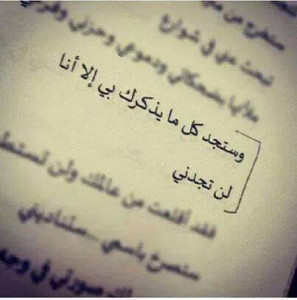 ستخرج من
تبحث عني في شوارع
ملأتها بضحكاتي ودموعي وحزني وفرحي
وستجد كل ما يذكرك بي إلا أنا
لن تجدني
فقد أقلعت من عالمك ولن تستطيع
ستصرخ باسمي ...ستناديني
صورتي في وجه